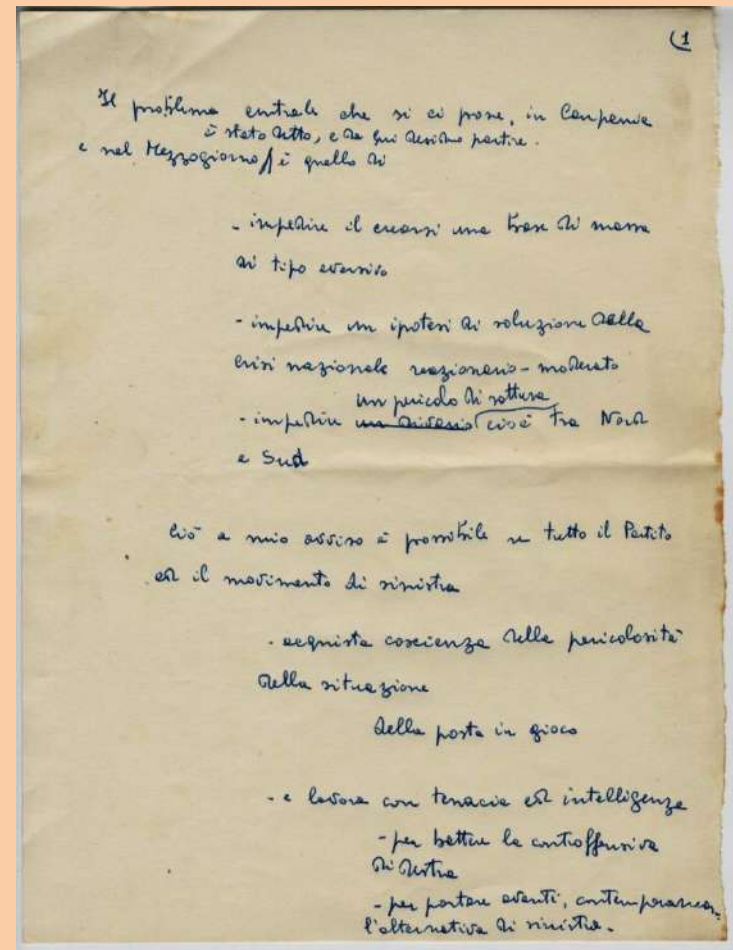 (1
Il problema centrale che si ci pone, in Campania
è stato detto, e da qui desidero partire.
e nel Mezzogiorno è quello di
- impedire il crearsi una base di massa
di tipo eversivo
- impedire un ipotesi di soluzione della
crisi nazionale reazionario-moderato
un pericolo di rottura
- impedire un divario cioè tra Nord
e Sud
Ciò a mio avviso è possibile se tutto il Partito
ed il movimento di sinistra
- acquista coscienza della pericolosità
della situazione
della posta in gioco
- e lavora con tenacia ed intelligenza
- per battere la controffensiva
di destra
- per portare avanti, contemporanea-
l'alternativa di sinistra.